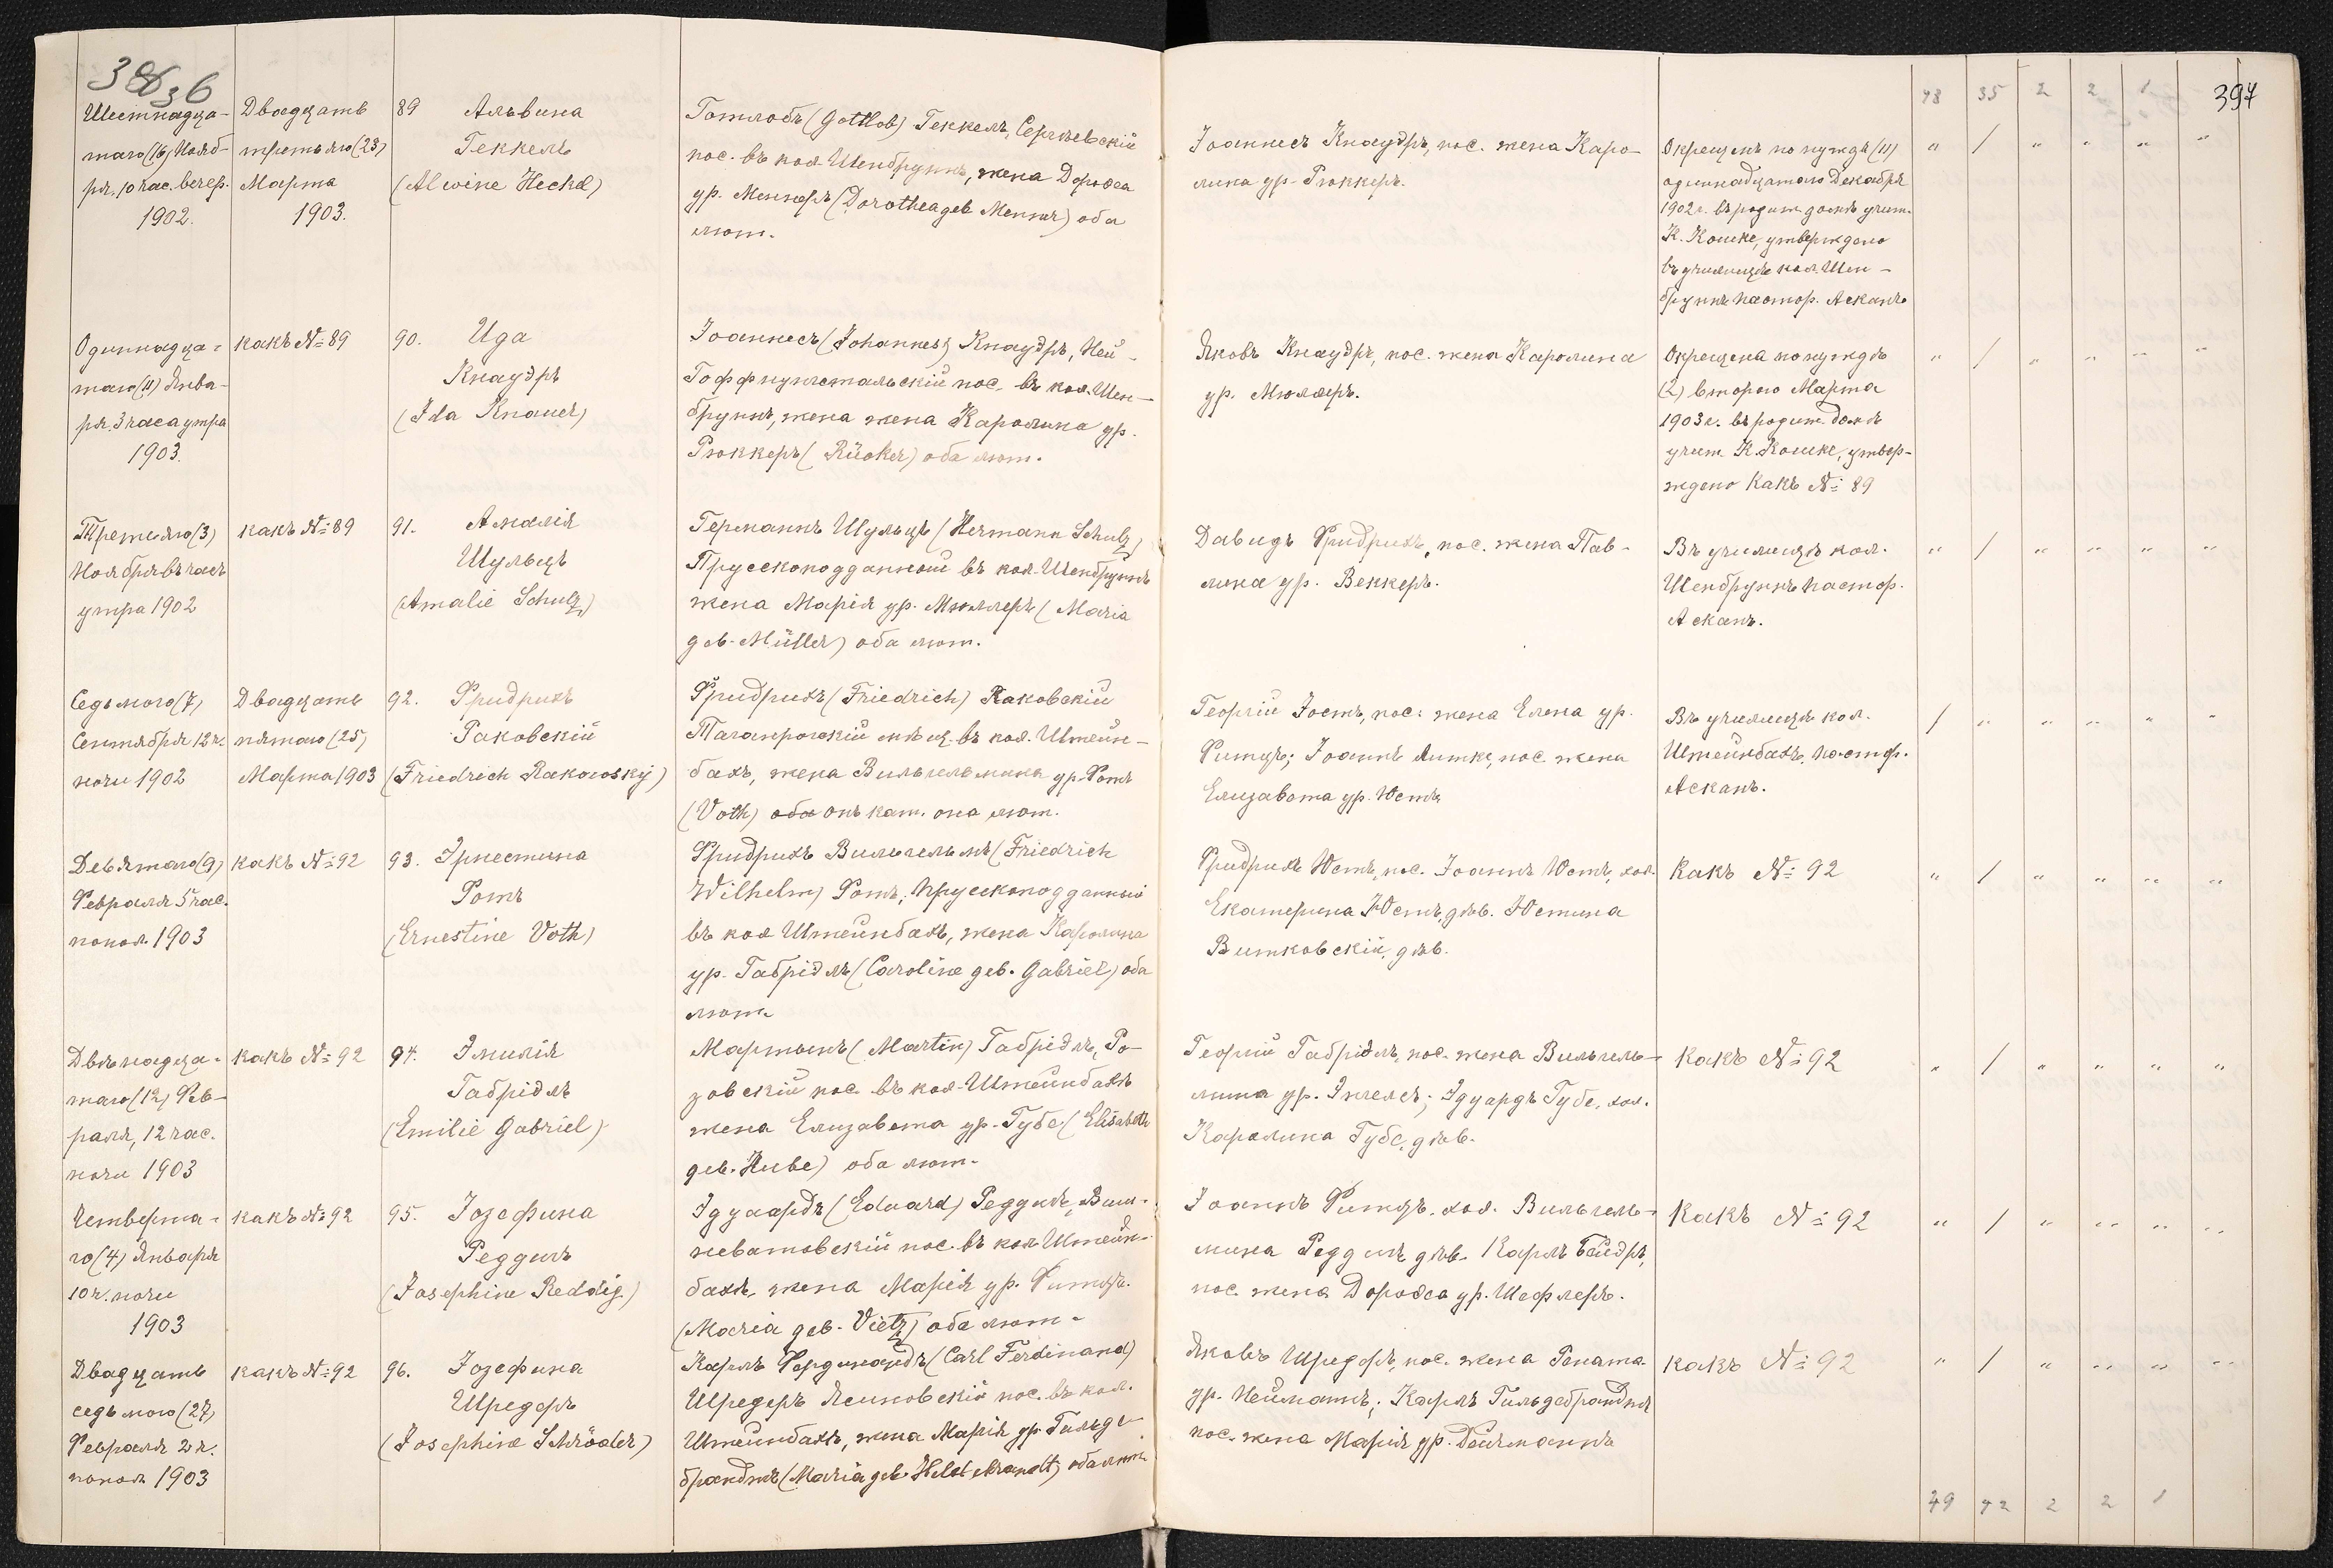 397
48 35 2 2 1
Шестнадца-
таго (16) Нояб-
ря, 10 час. вечер.
1902.
Двадцать
третьяго (23)
Марта
1903.
89 Альвина
Геккель
(Alwine Heckel)
Готлобъ (Gottlob) Геккель, Сергѣевскій
пос. въ кол. Шенбруннъ, жена Доротеа
ур. Меннеръ (Dorothea geb Menner) оба
лют.
Іоаннесъ Кнауэръ, пос. жена Каро-
лина ур. Рюккеръ.
Окрещенъ по нуждѣ (11)
одиннадцатаго Декабря
1902 г. въ родит. домѣ учит.
К. Кошке, утверждено
въ училищѣ кол. Шен-
бруннъ пастор. Асканъ
" / " " " "
Одиннадца-
таго (11) Янва-
ря, 3 часа утра
1903.
какъ № 89
90. Ида
Кнауэръ
(Ida Knauer)
Іоаннесъ (Johannes) Кнауэръ, Ней-
Гоффнунгстальскій пос. въ кол. Шен-
бруннъ, жена жена Каролина ур.
Рюккеръ (Rücker) оба лют.
Яковъ Кнауэръ, пос. жена Каролина
ур. Мюллеръ.
Окрещена по нуждѣ
(2) второго Марта
1903 г. въ родит. домѣ
учит К. Кошке, утвер-
ждено какъ № 89
" / " " " "
Третьяго (3)
Ноября въ часъ
утра 1902
какъ № 89
91. Амалія
Шульцъ
(Amalie Schulz)
Германнъ Шульцъ (Hermann Schulz)
Прусскоподданный въ кол. Шенбруннъ
жена Марія ур. Мюллеръ (Maria
geb. Müller) оба лют.
Давидъ Фридрихъ, пос. жена Пав-
лина ур. Веккеръ.
Въ училищѣ кол.
Шенбруннъ пастор.
Асканъ.
" / " " " "
Седьмого (7)
Сентября 12 ч.
ночи 1902
Двадцать
пятаго (25)
Марта 1903
92. Фридрихъ
Раковскій
(Friedrich Rakowsky)
Фридрихъ (Friedrich) Раковскій
Таганрогскій мѣщ. въ кол. Штейн-
бахъ, жена Вильгельмина ур. Фотъ
(Voth) оба онъ кат. она лют.
Георгій Іостъ, пос. жена Елена ур.
Фитцъ; Іоаннъ Литке, пос. жена
Елизавета ур. Юстъ
Въ училищѣ кол.
Штейнбахъ, пастор.
Асканъ.
/ " " " " "
Девятаго (9)
Февраля 5 час.
попол. 1903
какъ № 92
93. Эрнестина
Фотъ
(Ernestine Voth)
Фридрихъ Вильгельмъ (Friedrich
Wilhelm) Фотъ, Прусскоподданный
въ кол Штейнбахъ, жена Каролина
ур. Габріэль (Caroline geb. Gabriel) оба
лют.
Фридрихъ Юстъ, пос. Іоаннъ Юстъ, хол.
Екатерина Юстъ, дѣв. Юстина
Витковскій, дѣв.
Какъ № 92
" / " " " "
Двѣнадца-
таго (12) Фев-
раля, 12 час.
ночи 1903
какъ № 92
94. Эмилія
Габріэль
(Emilie Gabriel)
Мартынъ (Martin) Габріэль, Ро-
зовскій пос. въ кол. Штейнбахъ
жена Елизавета ур. Губе (Elisabeth
geb. Hube) оба лют.
Георгій Габріэль, пос. жена Вильгель-
мина ур. Энгельсъ; Эдуардъ Губе, хол.
Каролина Губе, дѣв.
Какъ № 92
" / " " " "
Четверта-
го (4) Января
10 ч. ночи
1903
какъ № 92
95. Іозефина
Реддигъ
(Josephine Reddig)
Эдуардъ (Eduard) Реддигъ,
неватовскій пос. въ кол Штейн-
бахъ, жена Марія ур. Фитцъ.
(Maria geb. Vietz) оба лют.
Іоаннъ Фитцъ, хол. Вильгель-
мина Реддигъ дѣв. Карлъ Байэръ,
пос. жена Доротеа ур. Шефлеръ.
Какъ № 92
" / " " " "
Двадцать
седьмого (27)
Февраля 2 ч.
попол 1903
какъ № 92
96. Іозефина
Шредеръ
(Josephine Schröder)
Карлъ Фердинандъ (Carl Ferdinand)
Шредеръ Ясиновскій пос. въ кол.
Штейнбахъ, жена Марія ур. Гильде-
брандтъ (Maria geb. Hildebrandt) оба лют.
Яковъ Шредеръ, пос. жена Рената
ур. Нейманъ; Карлъ Гильдебрандтъ
пос. жена Марія ур.
какъ № 92
" / " " " "
49 42 2 2 1